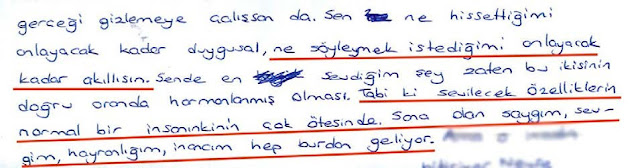 gerçeği gizlemeye çalışsan da. Sen ne hissettiğimi
anlayacak kadar duygusal, ne söylemek istediğimi anlayacak
kadar akıllısın. Sende en sevdiğim şey zaten bu ikisinin
doğru oranda harmanlanmış olması. Tabi ki sevilecek özelliklerin
normal bir insanınkinin çok ötesinde. Sana olan saygım, sev-
gim, hayranlığım, inancım hep burdan geliyor.